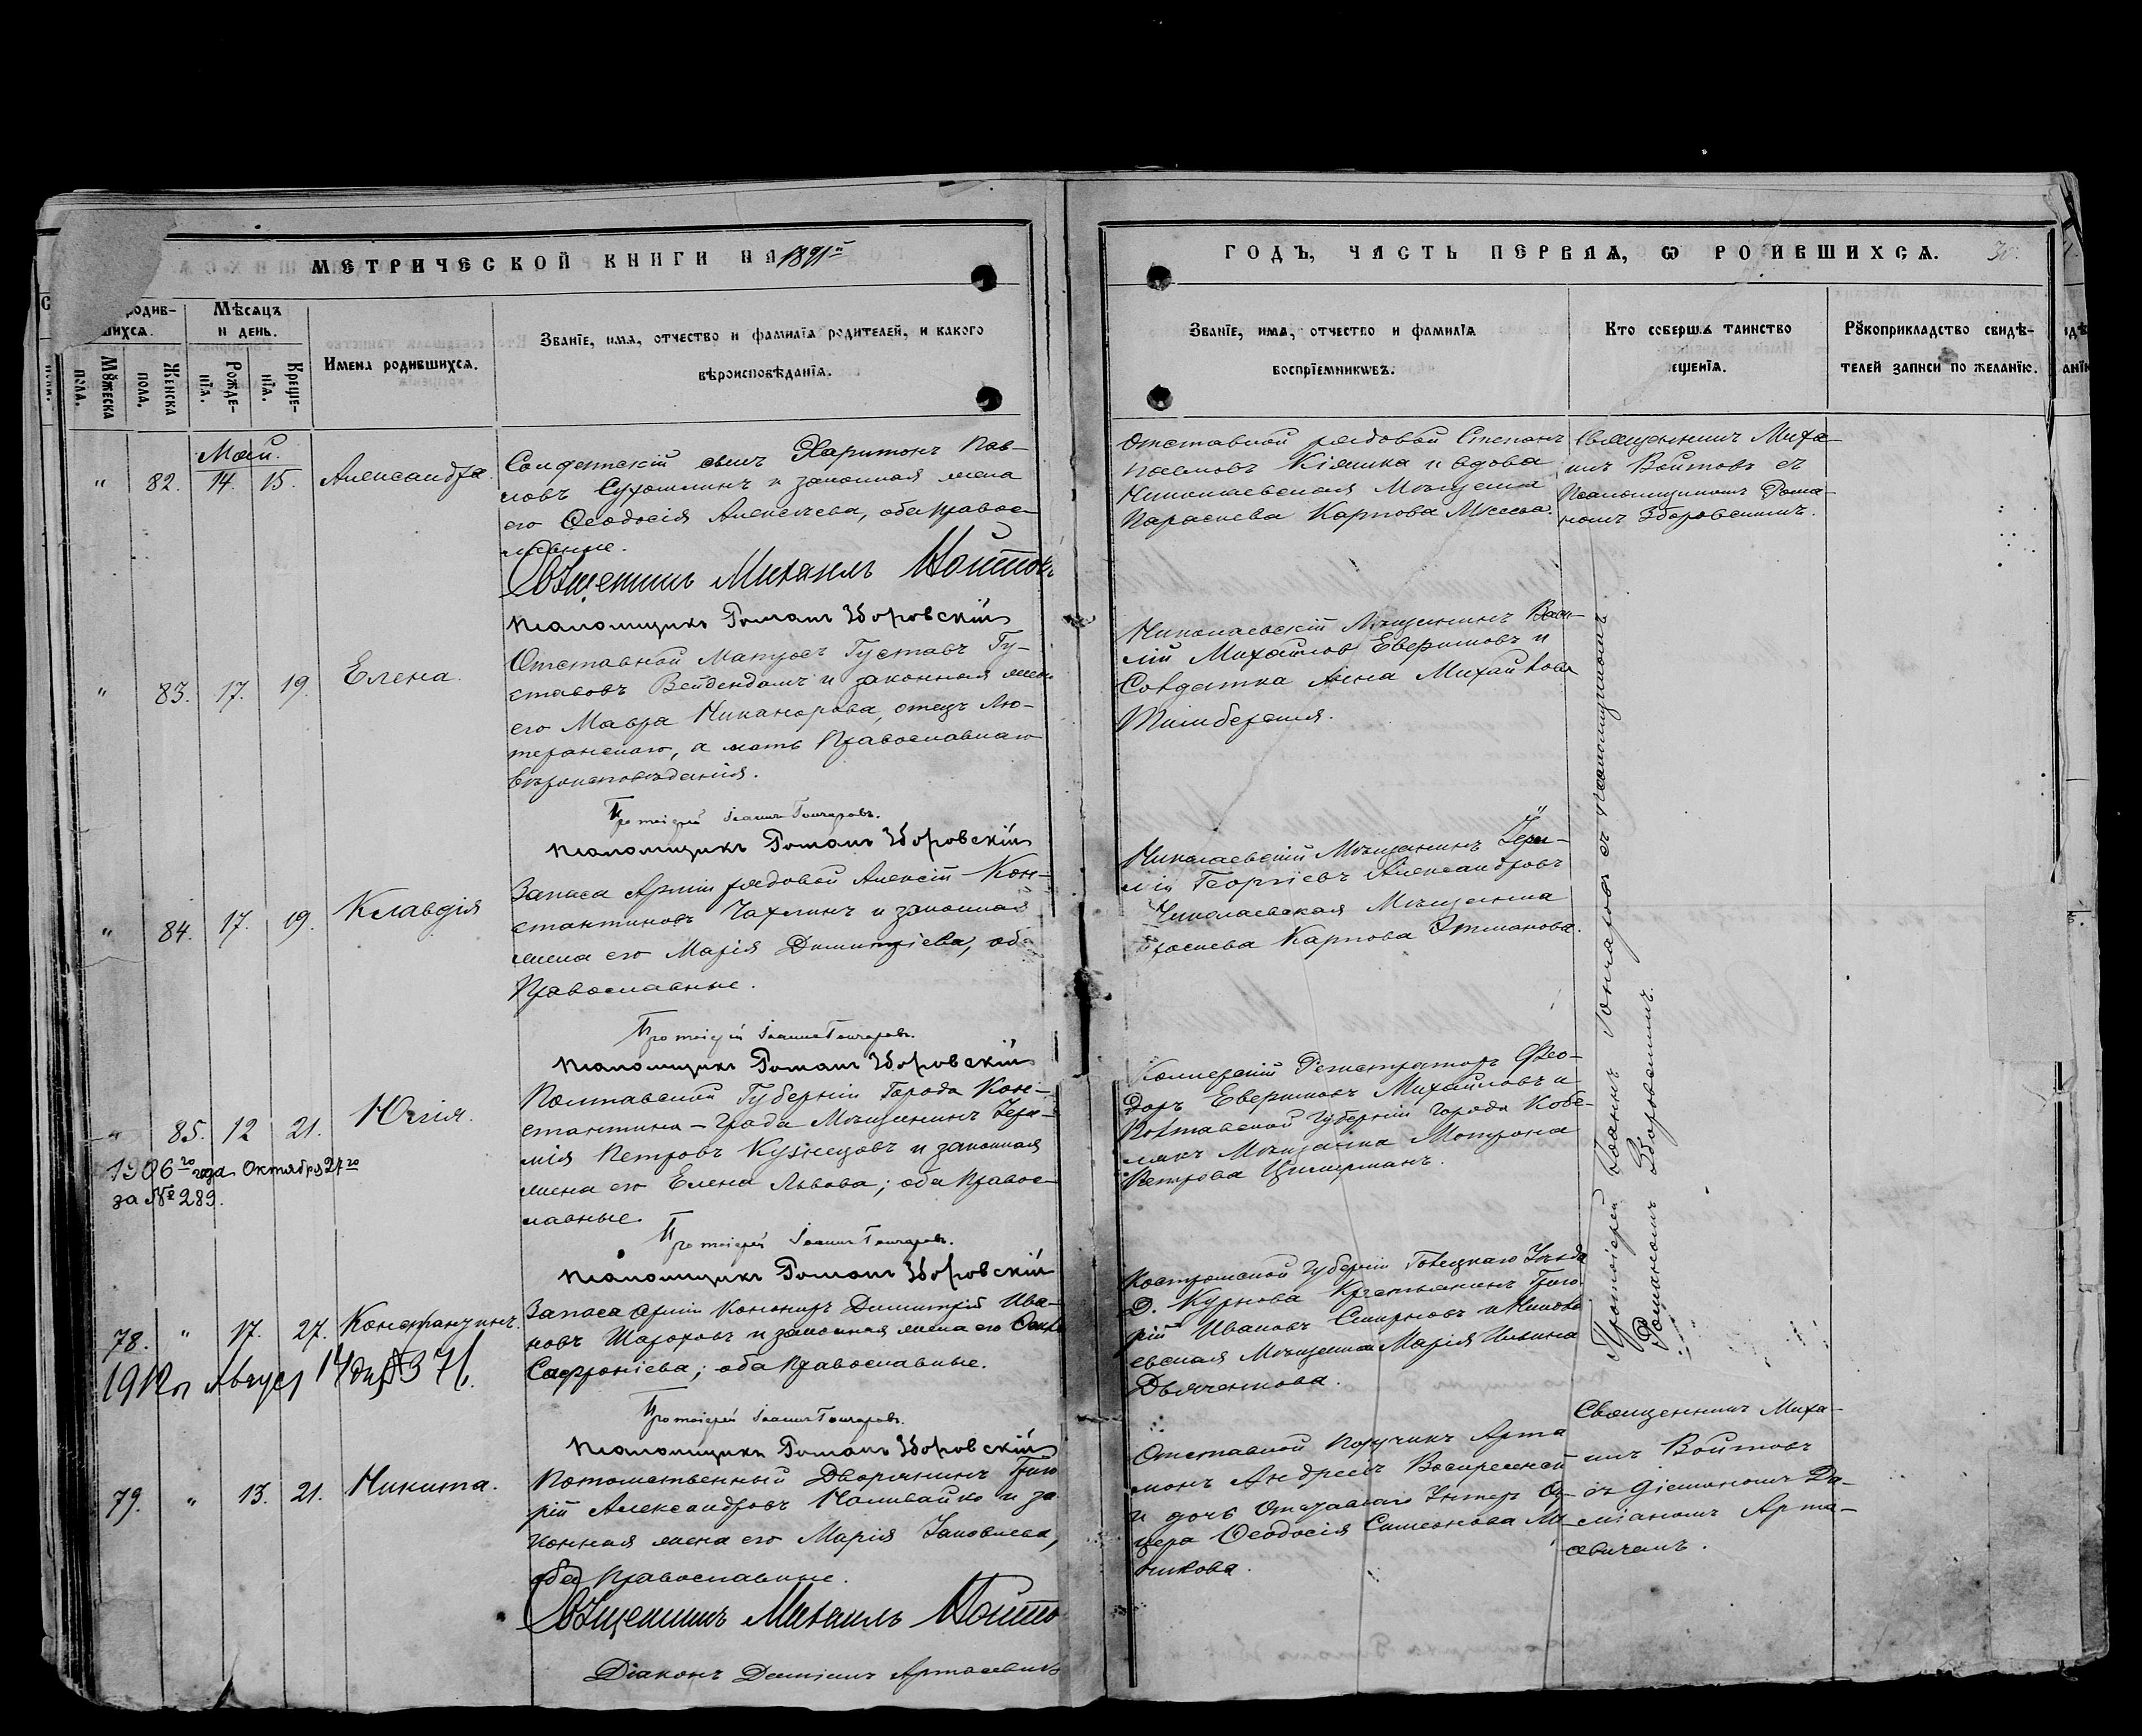 МЕТРИЧЕСКОЙ КНИГИ НА 1891й
ГОДЪ, ЧАСТЬ ПЕРВАЯ, Ѡ РО ИВШИХСЯ.
родив-
шихся.
Мѣсяцъ
и день.
Мꙋжеска
пола.
Женска
пола.
Рожде-
нїя.
Креще-
нїя.
Имена родившихся.
Званїе, имя, отчество и фамилїя родителей, и какого
вѣроисповѣданїя.
Званїе, имя, отчество и фамилїя
воспрїемникѡвъ.
Кто соверш. таинство
ещенїя.
Рꙋкоприкладство свидѣ-
телей записи по желанїю.
Май.
" 82. 14. 15. Александра.
Солдатскій сынъ Харитонъ Пав-
ловъ и законная жена
его Ѳеодосія Алексѣева, оба Правос-
лавные.
Священникъ Михаилъ Войтовъ
Псаломщикъ Романъ Зборовскій
Отставной рядовой Степанъ
и вдова
Николаевская Мѣщанка
Параскева Карпова
Священникъ Миха-
илъ Войтовъ съ
Псаломщикомъ Рома-
номъ Зборовскимъ.
" 83. 17. 19. Елена.
Отставной Матросъ Густавъ Гу-
ставовъ Вейдендамъ и законная жена
его Мавра Никанорова, отецъ Лю-
теранскаго, а мать Православнаго
Вѣроисповѣданія.
Протоіерей Іоаннъ Гончаровъ.
Псаломщикъ Романъ Зборовскій
Николаевскій Мѣщанинъ Васи-
лій Михайловъ Евфимовъ и
Солдатка Анна Михайлова
" 84. 17. 19. Клавдія
Запаса Арміи рядовой Алексій Кон-
стантиновъ и законная
жена его Марія Димитріева, оба
Православные.
Протоіерей Іоаннъ Гончаровъ.
Псаломщикъ Романъ Зборовскій
Николаевскій Мѣщанинъ
Георгіевъ Александровъ
Николаевская Мѣщанка
Карпова Этманова.
" 85. 12 21. Юлія.
1906го года Октября 24го
за № 289.
Полтавской Губерніи Города Кон-
стантино-града Мѣщанинъ Іере-
мія Петровъ Кузнецовъ и законная
жена его Елена Львова; оба Правос-
лавные.
Протоіерей Іоаннъ Гончаровъ.
Псаломщикъ Романъ Зборовскій
Коллежскій Регистраторъ Ѳео-
доръ Евфимовъ Михайловъ и
Полтавской Губерніи Города Кобе-
лякъ Мѣщанка Матрона
Петрова Цимерманъ.
Протоіерей Іоаннъ Гончаровъ съ Псаломщикомъ
Романомъ Зборовскимъ.
78. " 17. 27. Константинъ.
Запаса Арміи Канониръ Димитрій Ива-
новъ Шороховъ и законная жена его
Сафроніева; оба Православные.
Протоіерей Іоаннъ Гончаровъ.
Псаломщикъ Романъ Зборовскій
Костромской Губерніи Уѣзда
Д. Курнова Крестьянинъ Григо-
рій Ивановъ Смирновъ и Никола-
евская Мѣщанка Марія Ильина
Дьяченкова.
79. " 13. 21. Никита.
Потомственный Дворянинъ Григо-
рій Александровъ Наливайко и за-
конная жена его Марія Іаковлева,
оба Православные.
Священникъ Михаилъ Войтовъ
Діаконъ Даміанъ Артасевичъ
Отставной Поручикъ Арта-
монъ Андреевъ Воскресенскій
и дочь Отставнаго Унтеръ Оф-
цера Ѳеодосія Симеонова
Священникъ Миха-
илъ Войтовъ
съ Діакономъ Да-
міаномъ Арта-
севичемъ.